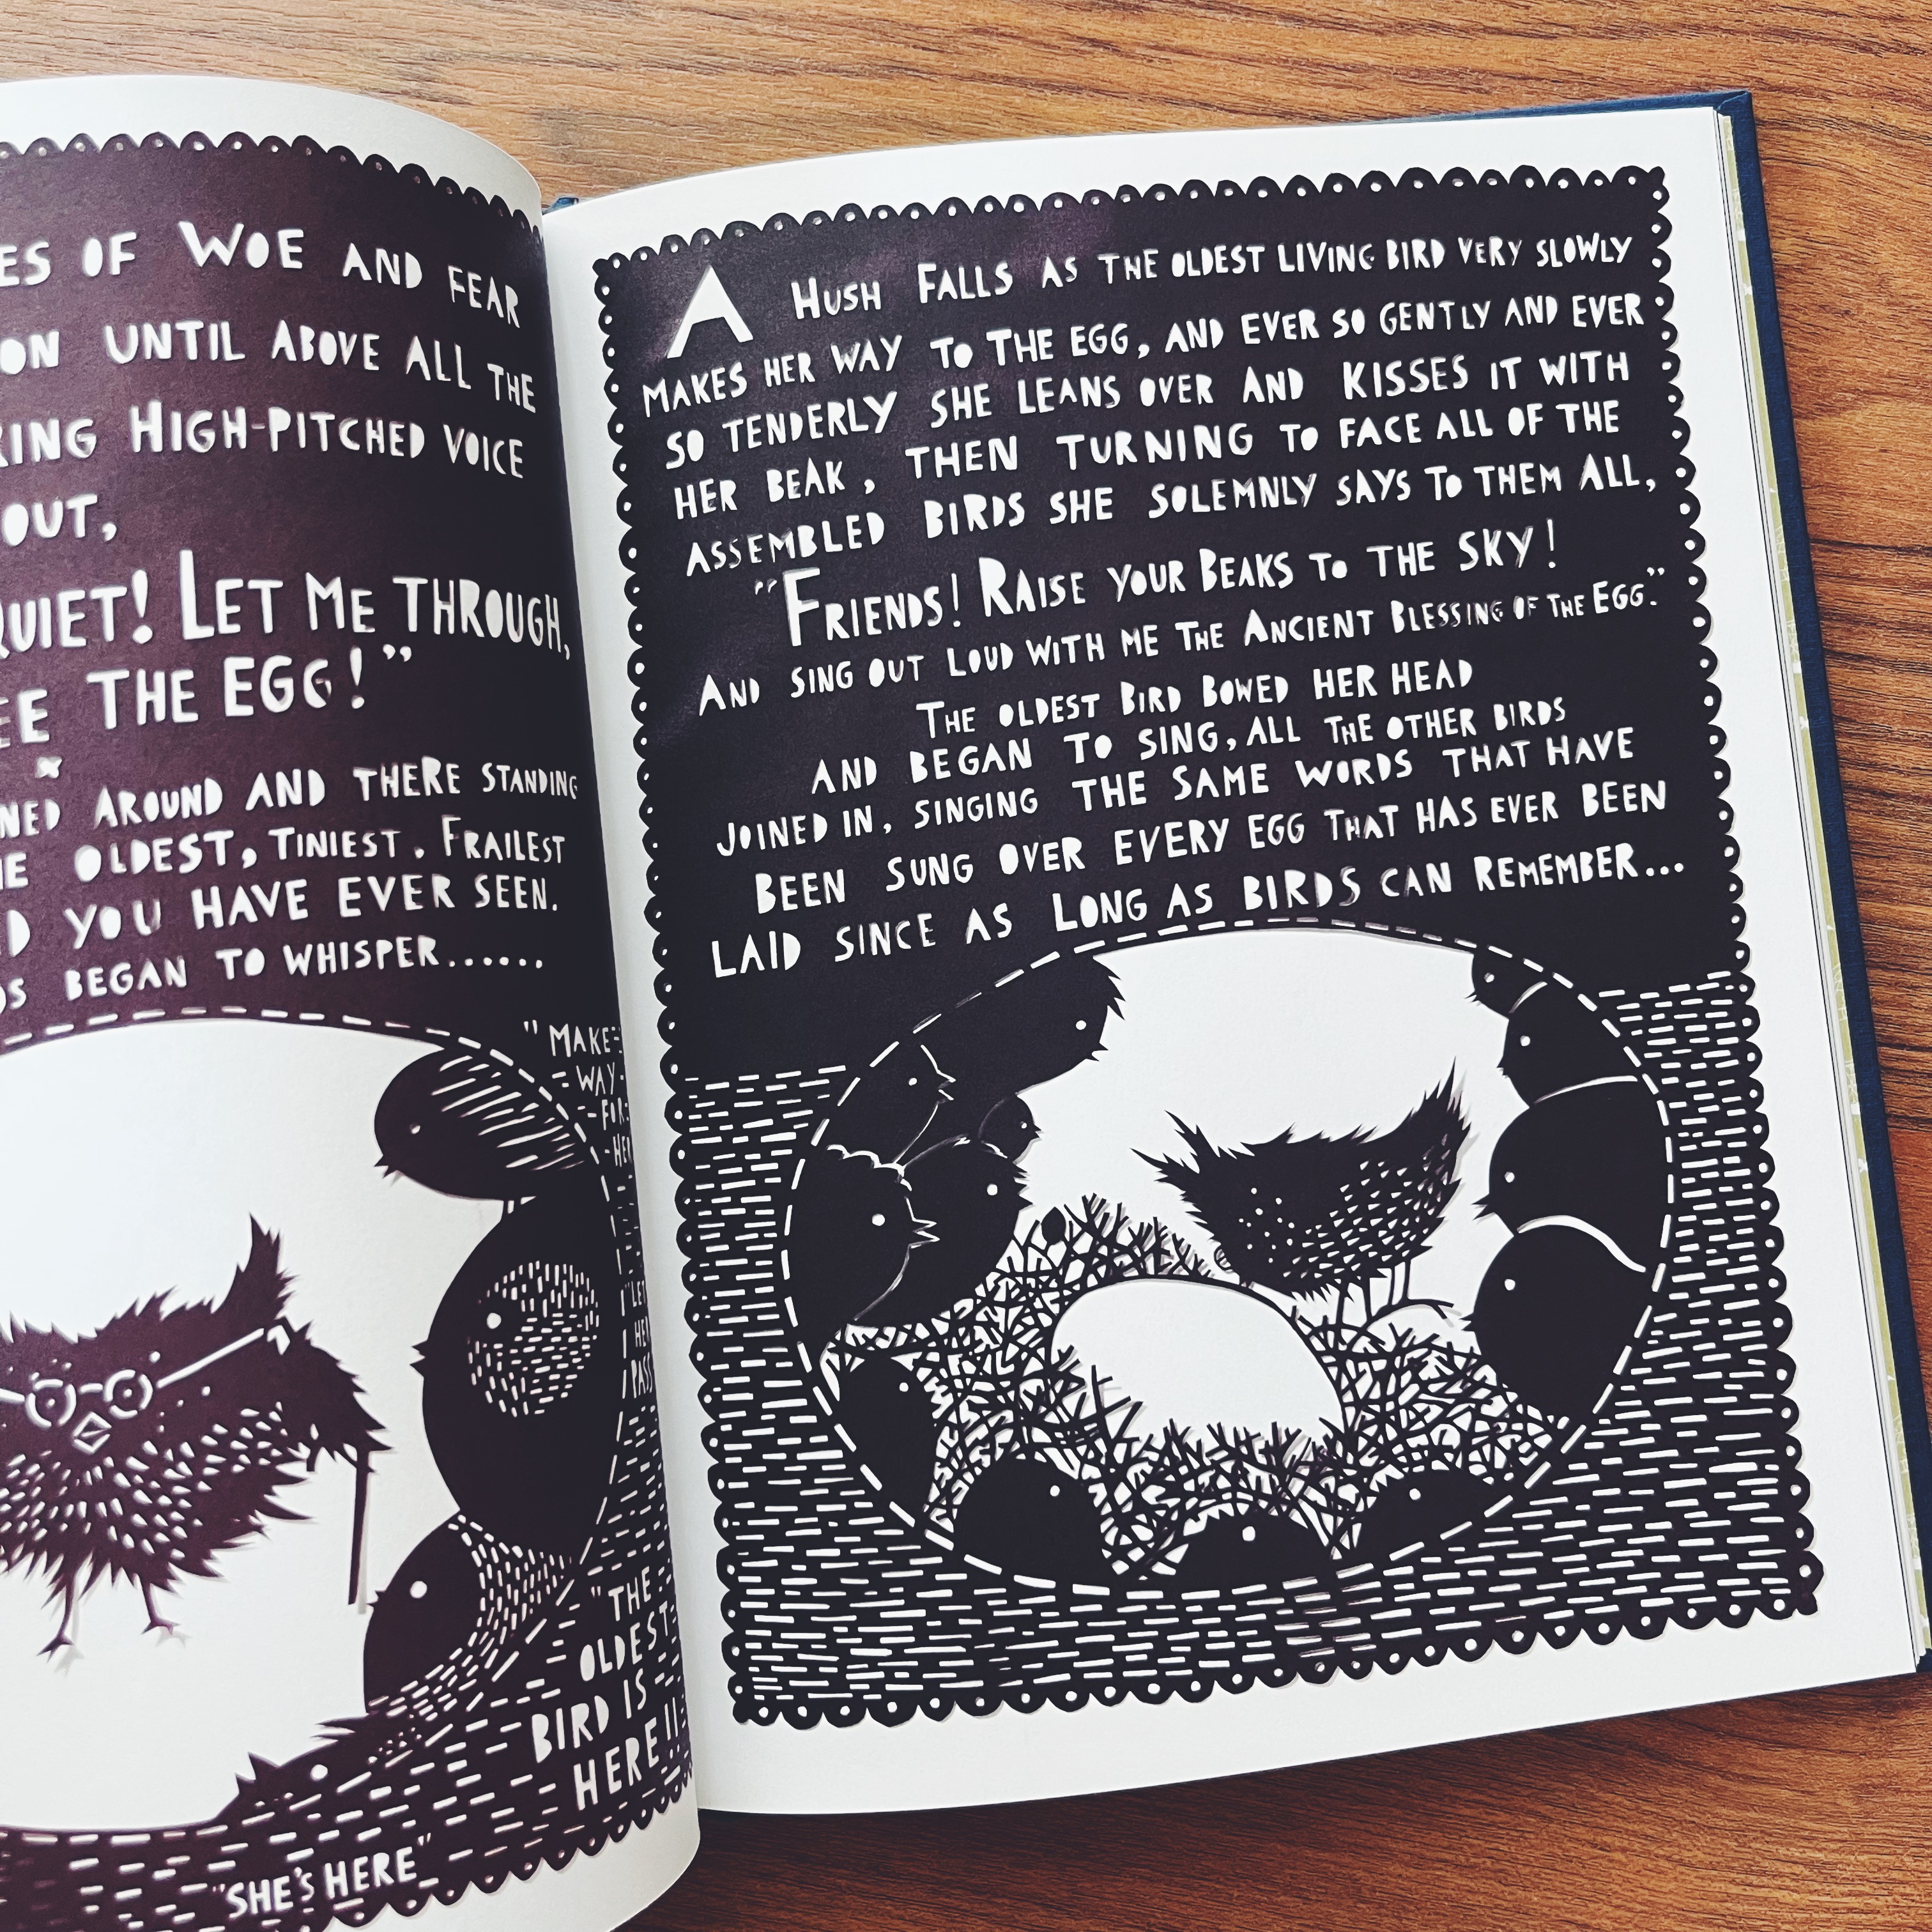 OF WOE AND FEAR
ON UNTIL ABOVE ALL THE
HIGH-PITCHED VOICE
OUT,
QUIET! LET ME THROUGH,
THE EGG!"
AROUND AND THERE STANDING
OLDEST, TINIEST, FRAILEST
YOU HAVE EVER SEEN.
BEGAN TO WHISPER......
"MAKE
WAY
FOR
HER
"LET
HER
PASS
"THE
OLDEST
BIRD IS
HERE!!
"SHE'S HERE"
A HUSH FALLS AS THE OLDEST LIVING BIRD VERY SLOWLY
MAKES HER WAY TO THE EGG, AND EVER SO GENTLY AND EVER
SO TENDERLY SHE LEANS OVER AND KISSES IT WITH
HER BEAK, THEN TURNING TO FACE ALL OF THE
ASSEMBLED BIRDS SHE SOLEMNLY SAYS TO THEM ALL,
"FRIENDS! RAISE YOUR BEAKS TO THE SKY!
AND SING OUT LOUD WITH ME THE ANCIENT BLESSING OF THE EGG."
THE OLDEST BIRD BOWED HER HEAD
AND BEGAN TO SING, ALL THE OTHER BIRDS
JOINED IN, SINGING THE SAME WORDS THAT HAVE
BEEN SUNG OVER EVERY EGG THAT HAS EVER BEEN
LAID SINCE AS LONG AS BIRDS CAN REMEMBER...